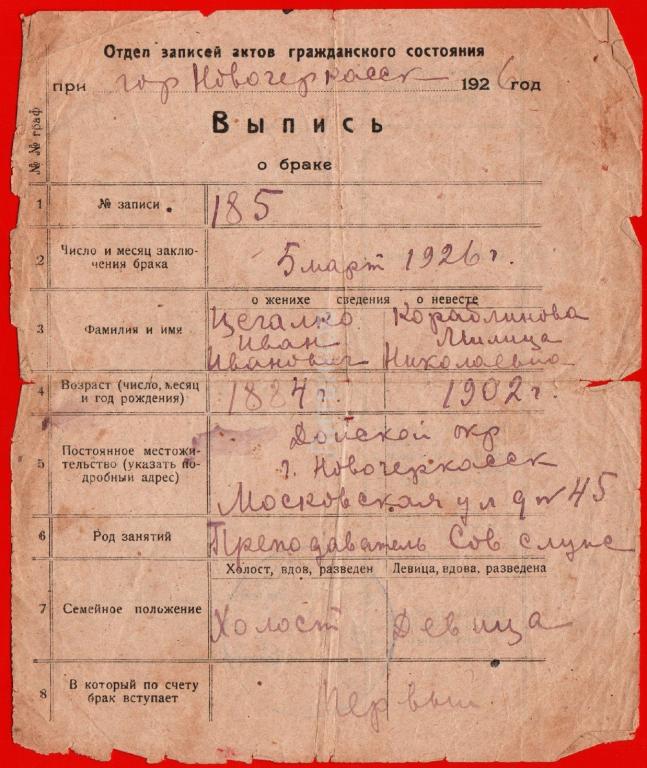 Отдел записей актов гражданского состояния
при гор Новочеркасск 1926 год
№ № граф
Выпись
о браке
1 № записи 185
2 Число и месяц заключения брака 5 март 1926 г.
о женихе сведения о невесте
3 Фамилия и имя
Цегалко Кораблинова
Иван Милица
Иванович Николаевна
4 Возраст (число, месяц и год рождения) 1884 г. 1902 г.
5 Постоянное местожительство (указать подробный адрес)
Донской окр
г. Новочеркасск
Московская ул д № 45
6 Род занятий Преподаватель Сов служ
Холост, вдов, разведен Девица, вдова, разведена
7 Семейное положение Холост Девица
8 В который по счету брак вступает Первый